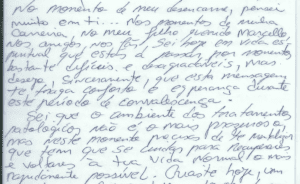 No momento de meu desencarne, pensei
muito em ti... Nos momentos de minha
Carreira, No meu filho querido Marcello,
nos amigos, nos fãs! Sei hoje em vida es
que estás passando por momentos
bastante difíceis e desagradáveis, mas
desejo, Sinceramente, que esta mensagem
te traga conforto e esperança durante
este período de convalescença.
Sei que o ambiente dos tratamentos
patológicos não é o mais prazeroso
mas neste momento
que tem que se cuidar para recuperar
e voltares a tua vida normal o mais
rapidamente possível. Quanto hoje, com